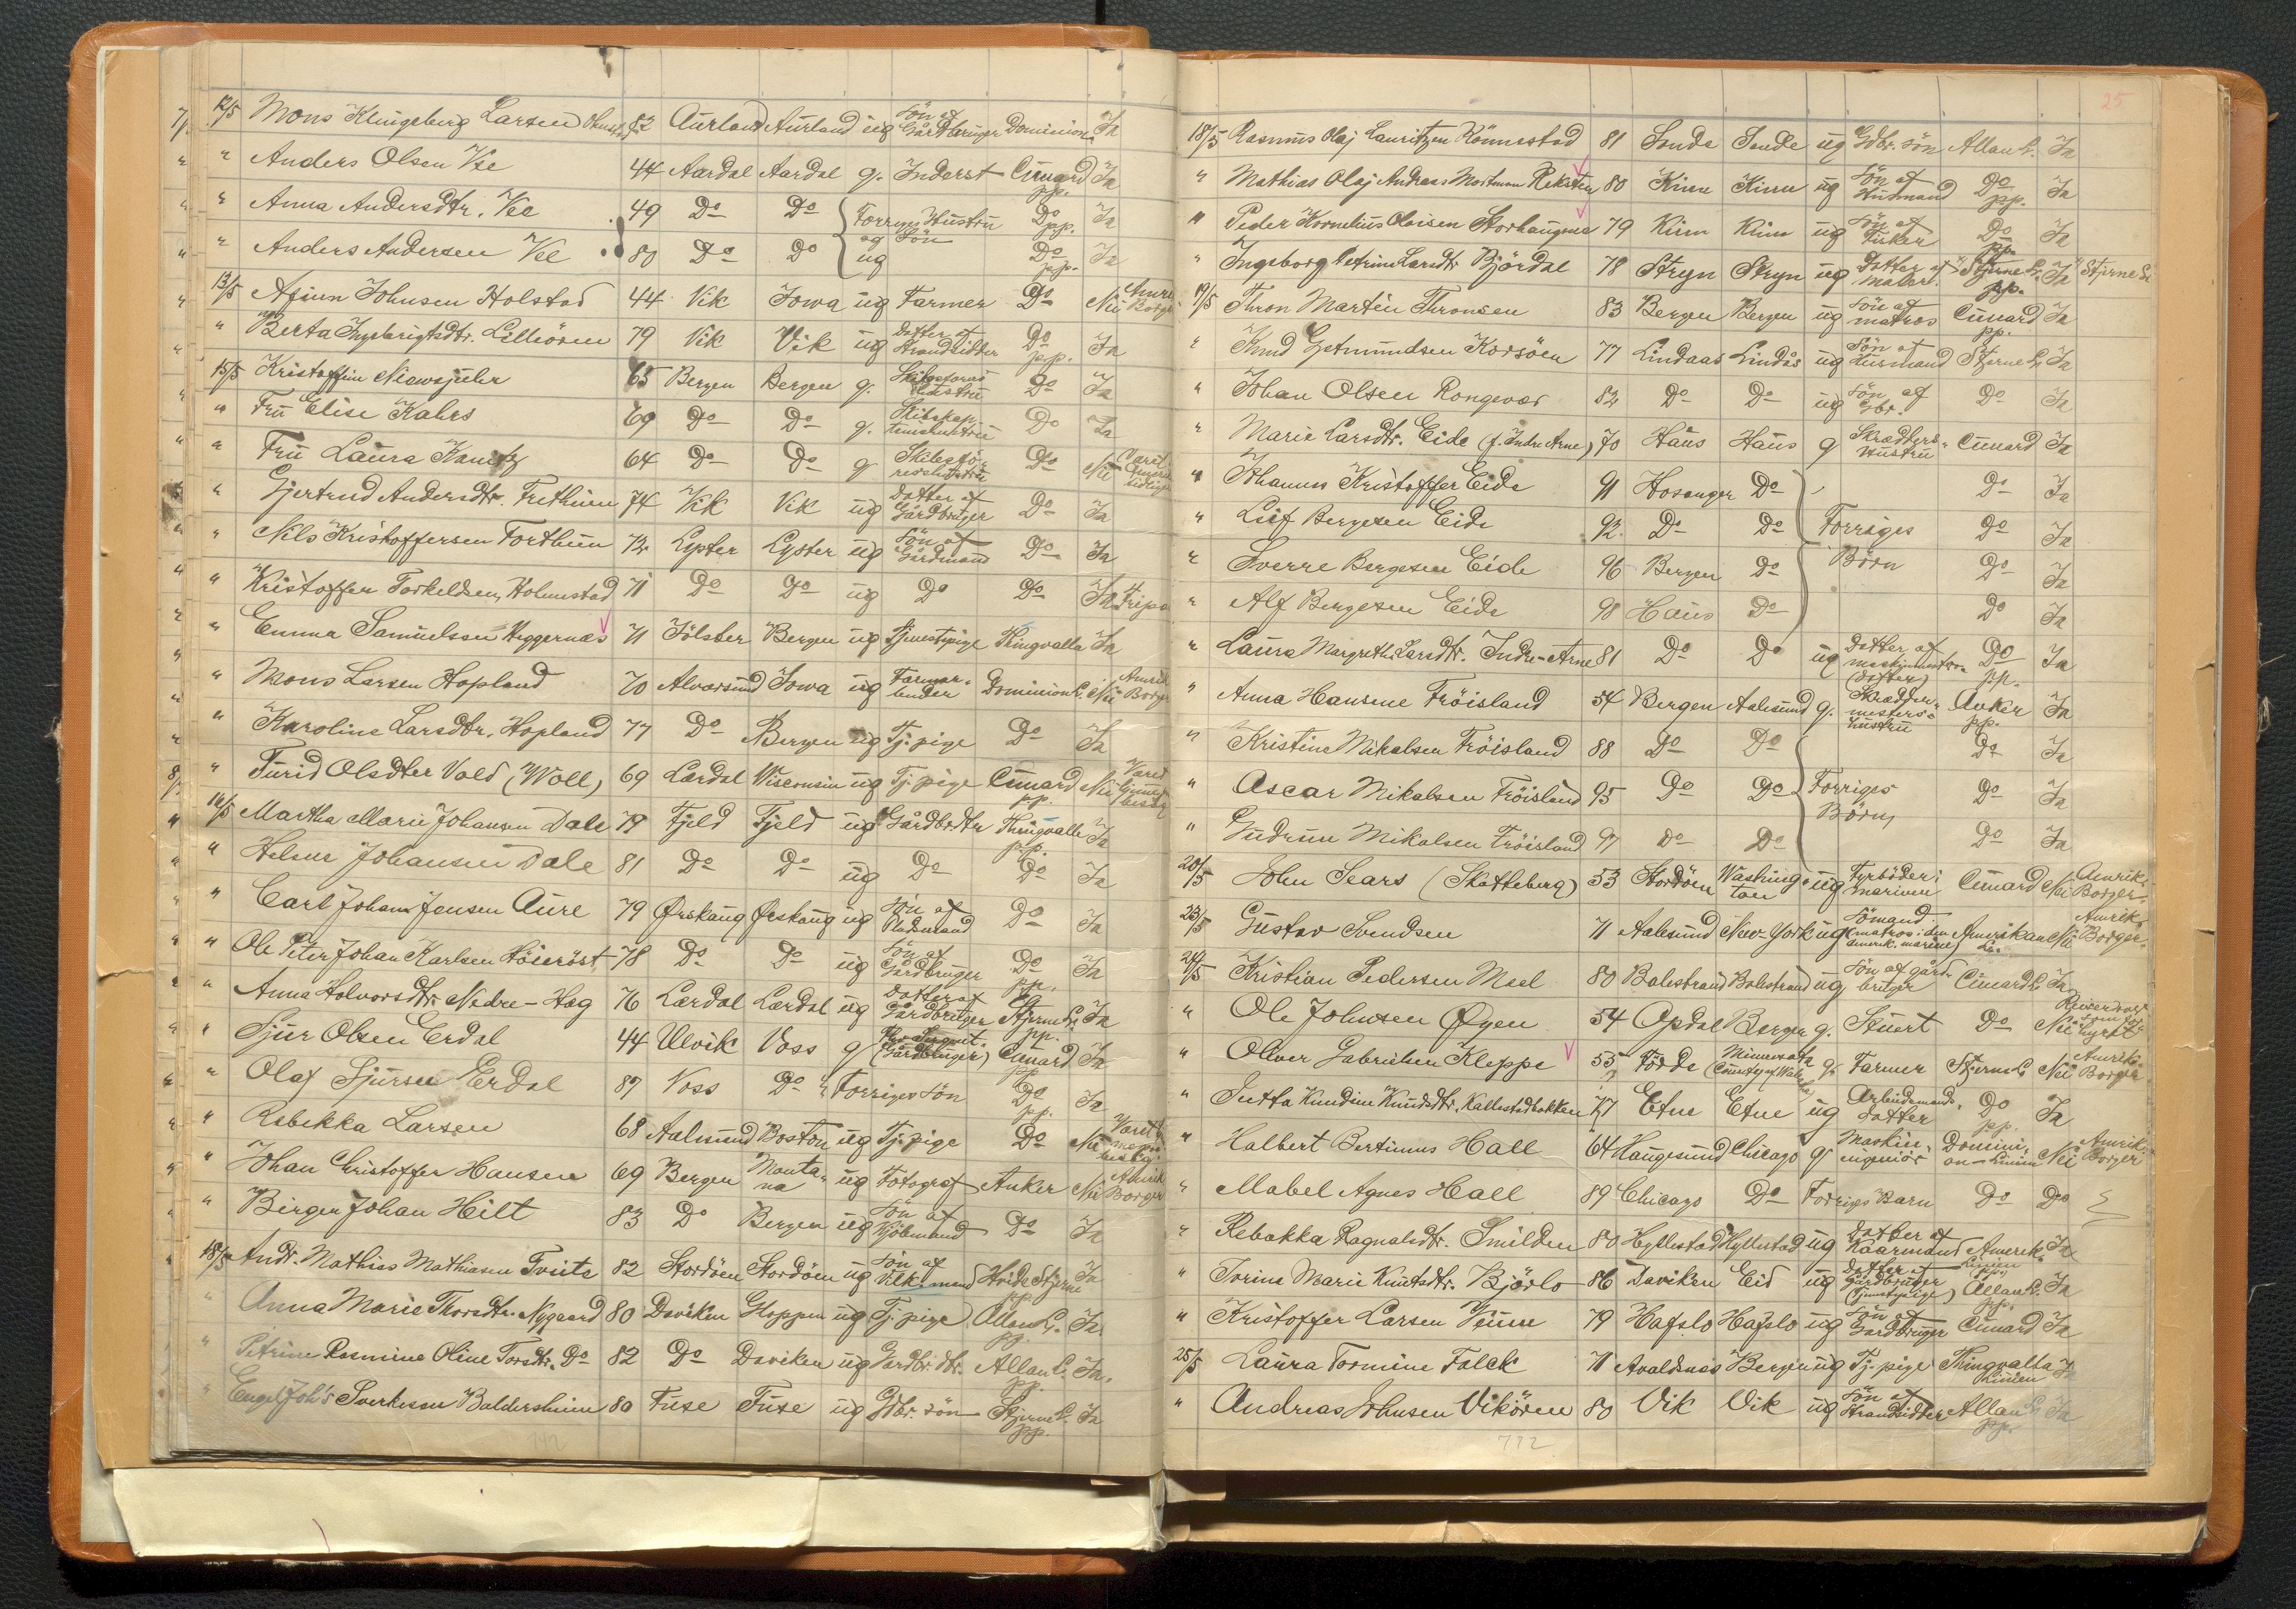 12/5 Mons Klingeberg Larsen 82 Aurland Aurland ug Søn af Gårdbruger Dominion Ja
" Anders Olsen Vee 44 Aardal Aardal g. Inderst Cunard pp. Ja
" Anna Andersdtr. Vee 49 Do Do Forriges Hustru Do pp. Ja
" Anders Andersen Vee 80 Do Do ug og Søn Do pp. Ja
13/5 Johnsen Holstad 44 Vik Iowa ug Farmer Do Nei
" Berta Ingebrigtsdtr. Lilliören 79 Vik Vik ug Datter af Strandsidder Do pp. Ja
15/5 65 Bergen Bergen g. Do Ja
" Frü Elise Kahrs 69 Do Do g. Do Ja
" Frü Laura 64 Do Do g Do Nei
" Gjertrud Andersdtr. Frethun 74 Vik Vik ug Datter af Gårdbruger Do Ja
" Nils Kristoffersen Forthun 72 Lyster Lyster ug Søn af Gårdmand Do Ja
" Kristoffer Torkeldsen Holmestad 71 Do Do ug Do Do Ja
" Emma Samuelsen Heggernæs 71 Jölster Bergen ug Tjenestepige Thingvalla Ja
" Mons Larsen Hopland 70 Alversund Iowa ug Dominion L. Nei Amrik Borger
" Karoline Larsdtr. Hopland 77 Do Bergen ug Tj. pige Do Ja
" Turid Olsdtter Vold (Woll) 69 Lærdal Wisconsin ug Tj. pige Cunard pp. Nei
16/5 Martha Marie Johansen Dale 79 Fjeld Fjeld ug Gårdbrdtr Thingvalla pp. Ja
" Helmer Johansen Dale 81 Do Do ug Do Do Ja
" Carl Johan Jensen Aure 79 Ørskaug Ørskaug ug Søn af Pladsmand Do Ja
" Ole Peter Johan Karlsen 78 Do Do ug Søn af Gårdbruger Do pp. Ja
" Anna Halvorsdtr. Nedre-Hæg 76 Lærdal Lærdal ug Datter af Gårdbruger Stjerne L. pp. Ja
" Sjur Olsen Erdal 44 Ulvik Voss g (Gårdbruger) Cunard pp. Ja
" Olaf Sjursen Erdal 87 Voss Do " Forriges Søn Do pp. Ja
" Rebekka Larsen 68 Aalesund Boston ug Tj. pige Do Nei
" Johan Christoffer Hansen 69 Bergen Montana ug Fotograf Anker Nei Amrik Borger
" Birger Johan Hilt 83 Do Bergen ug Søn af Kjøbmand Do Ja
18/5 Andr. Mathias Mathiasen Tveite 82 Stordöen Stordöen ug Søn af mand Hvide Stjerne pp. Ja
" Anna Marie Thorsdtr. Nygaard 80 Daviken Gloppen ug Tj. pige Allan L. pp. Ja
" Petrine Rasmine Oline Torsdtr. Do 82 Do Daviken ug Gårdbr. dtr. Allan L. pp. Ja
" Engel Joh's Sverkesen Baldersheim 80 Fuse Fuse ug Gdbr. søn Stjerne L. pp. Ja
25
18/5 Rasmus Olaj Lauritzen Könnestad 81 Sande Sande ug Gdbr. søn Allan L. Ja
" Mathias Olaj Andreas Reksten 80 Kinn Kinn ug Søn af Husmand Do pp. Ja
" Peder Kornelius Olaisen Storhaugen 79 Kinn Kinn ug Søn af Fisker Do pp. Ja
" Ingeborg Petrine Larsdtr Björdal 78 Stryn Stryn ug Datter af Stjerne L. pp. Ja
19/5 Thron Martin Thronsen 83 Bergen Bergen ug Søn af matros Cunard pp. Ja
" Knud Korsöen 77 Lindaas Lindås ug Søn af Husmand Stjerne L. Ja
" Johan Olsen Rongevær 82 Do Do ug Søn af Gbr. Do Ja
" Marie Larsdtr. Eide (f. Indre Arne) 70 Haus Haus g Skrædders Hustru Cunard Ja
" Johannes Kristoffer Eide 91 Hosanger Do Do Ja
" Leif Bergesen Eide 92 Do Do Forriges Do Ja
" Sverre Bergesen Eide 96 Bergen Do Börn Do Ja
" Alf Bergesen Eide 98 Haus Do Do Ja
" Laura Margrethe Larsdtr. Indre-Arne 81 Do Do ug Datter af (datter) Do pp. Ja
" Anna Hansine Fröisland 54 Bergen Aalesund g. Skrædder-mesters hustru Anker pp. Ja
" Kristine Mikalsen Fröisland 88 Do Do Do Ja
" Oscar Mikalsen Fröisland 95 Do Do Forriges Do Ja
" Gudrun Mikalsen Fröisland 97 Do Do Börn Do Ja
20/5 John Sears (Skatteberg) 53 Stordöen Washington ug Fyrböder i marinen Cunard Nei Amrik. Borger
23/5 Gustav Svendsen 71 Aalesund New-York ug Sömand (matros i den amerik. marine) Amerikan L. Nei Amrik. Borger.
24/5 Kristian Pedersen Mæl 80 Balestrand Balestrand ug Søn af gårdbruger Cunard L. Ja
" Ole Johnsen Øyen 54 Opdal Bergen g. Stuert Do Nei
" Oliver Gabrielsen Kleppe 55 Förde Minnesota g. Farmer Stjerne L. Nei Amrik. Borger
" Jutta Kundine Knudsdtr. Kallestadbakken 77 Etne Etne ug Arbeidsmands datter Do pp. Ja
" Halbert Bertinus Hall 64 Haugesund Chicago g. Maskiningeniör Dominion-Linien Nei Amrik. Borger
" Mabel Agnes Hall 89 Chicago Do Forriges Barn Do Do
" Rebekka Ragnalsdtr. Smilden 80 Hyllestad Hyllestad ug Datter af Kaarmand Amerik. Linien pp. Ja
" Marie Knutsdtr. Björlo 86 Daviken Eid ug Datter af Gårdbruger (Tjenestepige) Allan L. pp. Ja
" Kristoffer Larsen 79 Hafslo Hafslo ug Søn af Gårdbruger Cunard Ja
25/5 Laura Tormine Falck 71 Avaldsnæs Bergen ug Tj. pige Thingvalla Linien Ja
" Andreas Johnsen Vikören 80 Vik Vik ug Søn af Strandsidder Allan L. pp. Ja